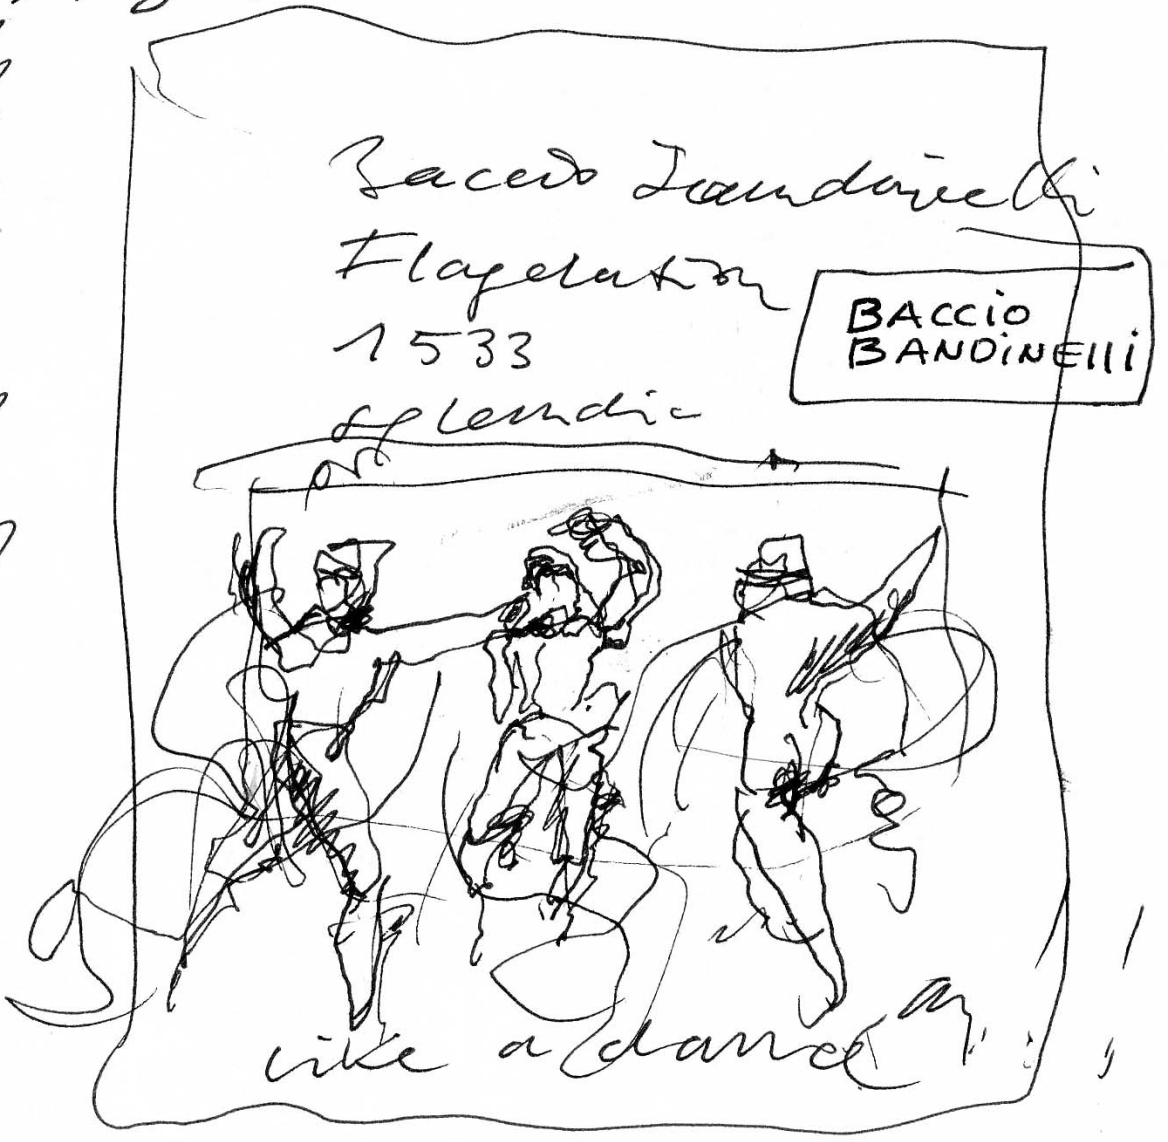 Baccio Bandinelli
Flagelation
1533
splendid
BACCIO
BANDINELLI
like a dance